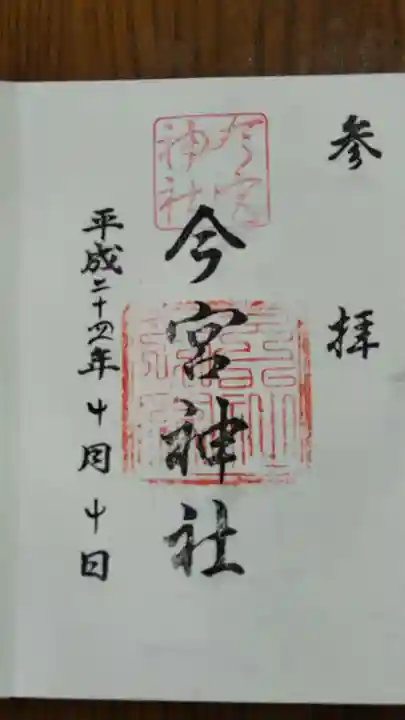 参拝
今宮
神社
今宮神社
平成二十四年 月 日